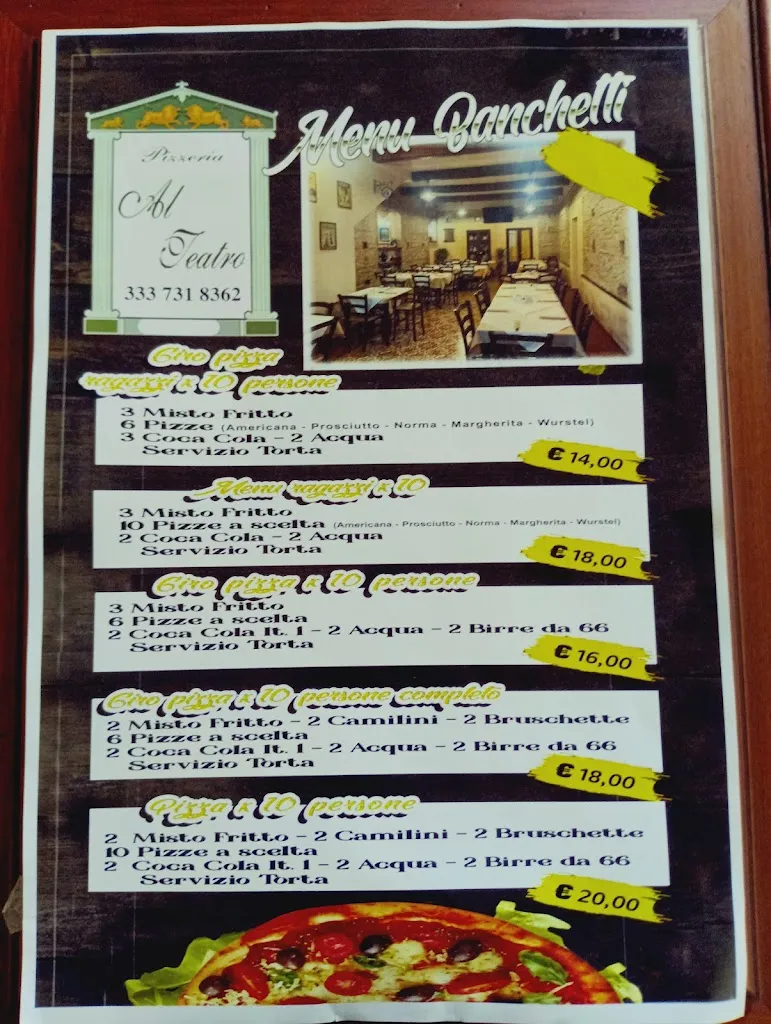 Menu Banchetti
Pizzeria
Al
Teatro
333 731 8362
Giro pizza
ragazzi x 10 persone
3 Misto Fritto
6 Pizze (Americana - Prosciutto - Norma - Margherita - Wurstel)
3 Coca Cola - 2 Acqua
Servizio Torta
€ 14,00
Menu ragazzi x 10
3 Misto Fritto
10 Pizze a scelta (Americana - Prosciutto - Norma - Margherita - Wurstel)
2 Coca Cola - 2 Acqua
Servizio Torta
€ 18,00
Giro pizza x 10 persone
3 Misto Fritto
6 Pizze a scelta
2 Coca Cola lt. 1 - 2 Acqua - 2 Birre da 66
Servizio Torta
€ 16,00
Giro pizza x 10 persone completo
2 Misto Fritto - 2 Camilini - 2 Bruschette
6 Pizze a scelta
2 Coca Cola lt. 1 - 2 Acqua - 2 Birre da 66
Servizio Torta
€ 18,00
Pizza x 10 persone
2 Misto Fritto - 2 Camilini - 2 Bruschette
10 Pizze a scelta
2 Coca Cola lt. 1 - 2 Acqua - 2 Birre da 66
Servizio Torta
€ 20,00